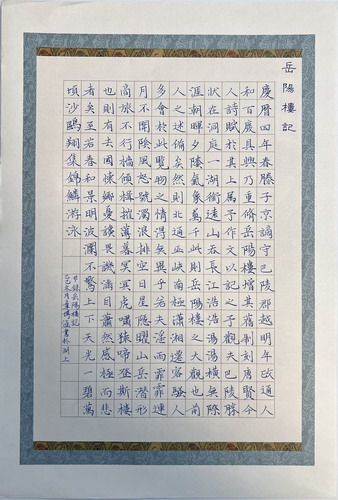 岳陽樓記
慶曆四年春滕子京謫守巴陵郡越明年政通人
和百廢具興乃重修岳陽樓增其舊制刻唐賢今
人詩賦於其上屬予作文以記之予觀夫巴陵勝
狀在洞庭一湖銜遠山吞長江浩浩湯湯橫無際
涯朝暉夕陰氣象萬千此則岳陽樓之大觀也前
人之述備矣然則北通巫峽南極瀟湘遷客騷人
多會於此覽物之情得無異乎若夫淫雨霏霏連
月不開陰風怒號濁浪排空日星隱曜山岳潛形
商旅不行檣傾楫摧薄暮冥冥虎嘯猿啼登斯樓
也則有去國懷鄉憂讒畏譏滿目蕭然感極而悲
者矣至若春和景明波瀾不驚上下天光一碧萬
頃沙鷗翔集錦鱗游泳
節錄岳陽樓記
乙巳冬月書於湖上